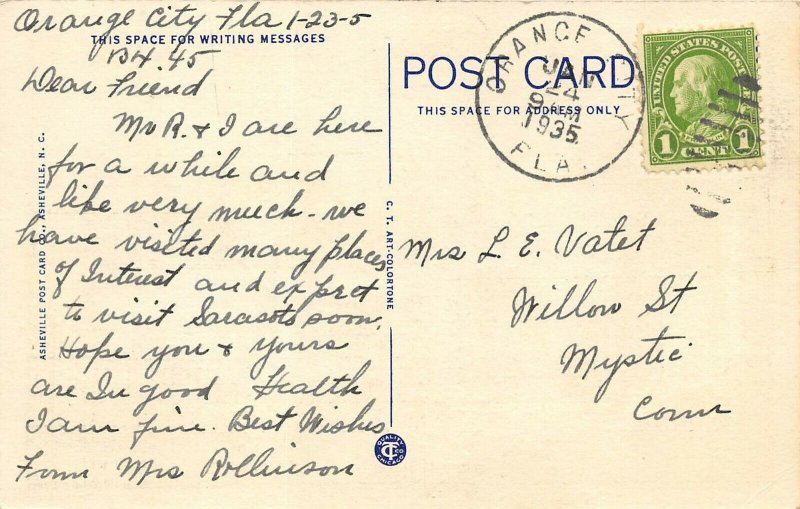 Orange City Fla 1-23-5
THIS SPACE FOR WRITING MESSAGES
BX 45
Dear Friend
Mr R. & I are here
for a while and
like very much - we
have visited many places
of Interest and expect
to visit Sarasota soon.
Hope you & yours
are In good Health
I am fine. Best Wishes
From Mrs Rollinson
ASHEVILLE POST CARD CO., ASHEVILLE, N. C.
C. T. ART-COLORTONE
QUALITY
CT CO
CHICAGO
POST CARD
THIS SPACE FOR ADDRESS ONLY
ORANGE CITY
JAN
24
9 AM
1935
FLA.
UNITED STATES POSTAGE
1 CENT 1
Mrs L. E. Vatet
Willow St
Mystic
Conn